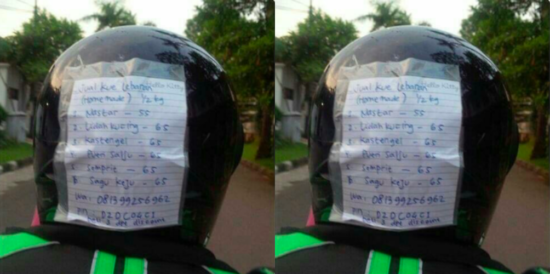 Jual Kue Lebaran
(Home made) 1/2 kg
1. Nastar - 55
2. Lidah kucing - 65
3. Kastengel - 65
4. Putri Salju - 65
5. Semprit - 65
6. Sagu keju - 65
081399256962
D20C06C1
Jual Kue Lebaran
(Home made) 1/2 kg
1. Nastar - 55
2. Lidah kucing - 65
3. Kastengel - 65
4. Putri Salju - 65
5. Semprit - 65
6. Sagu keju - 65
081399256962
D20C06C1